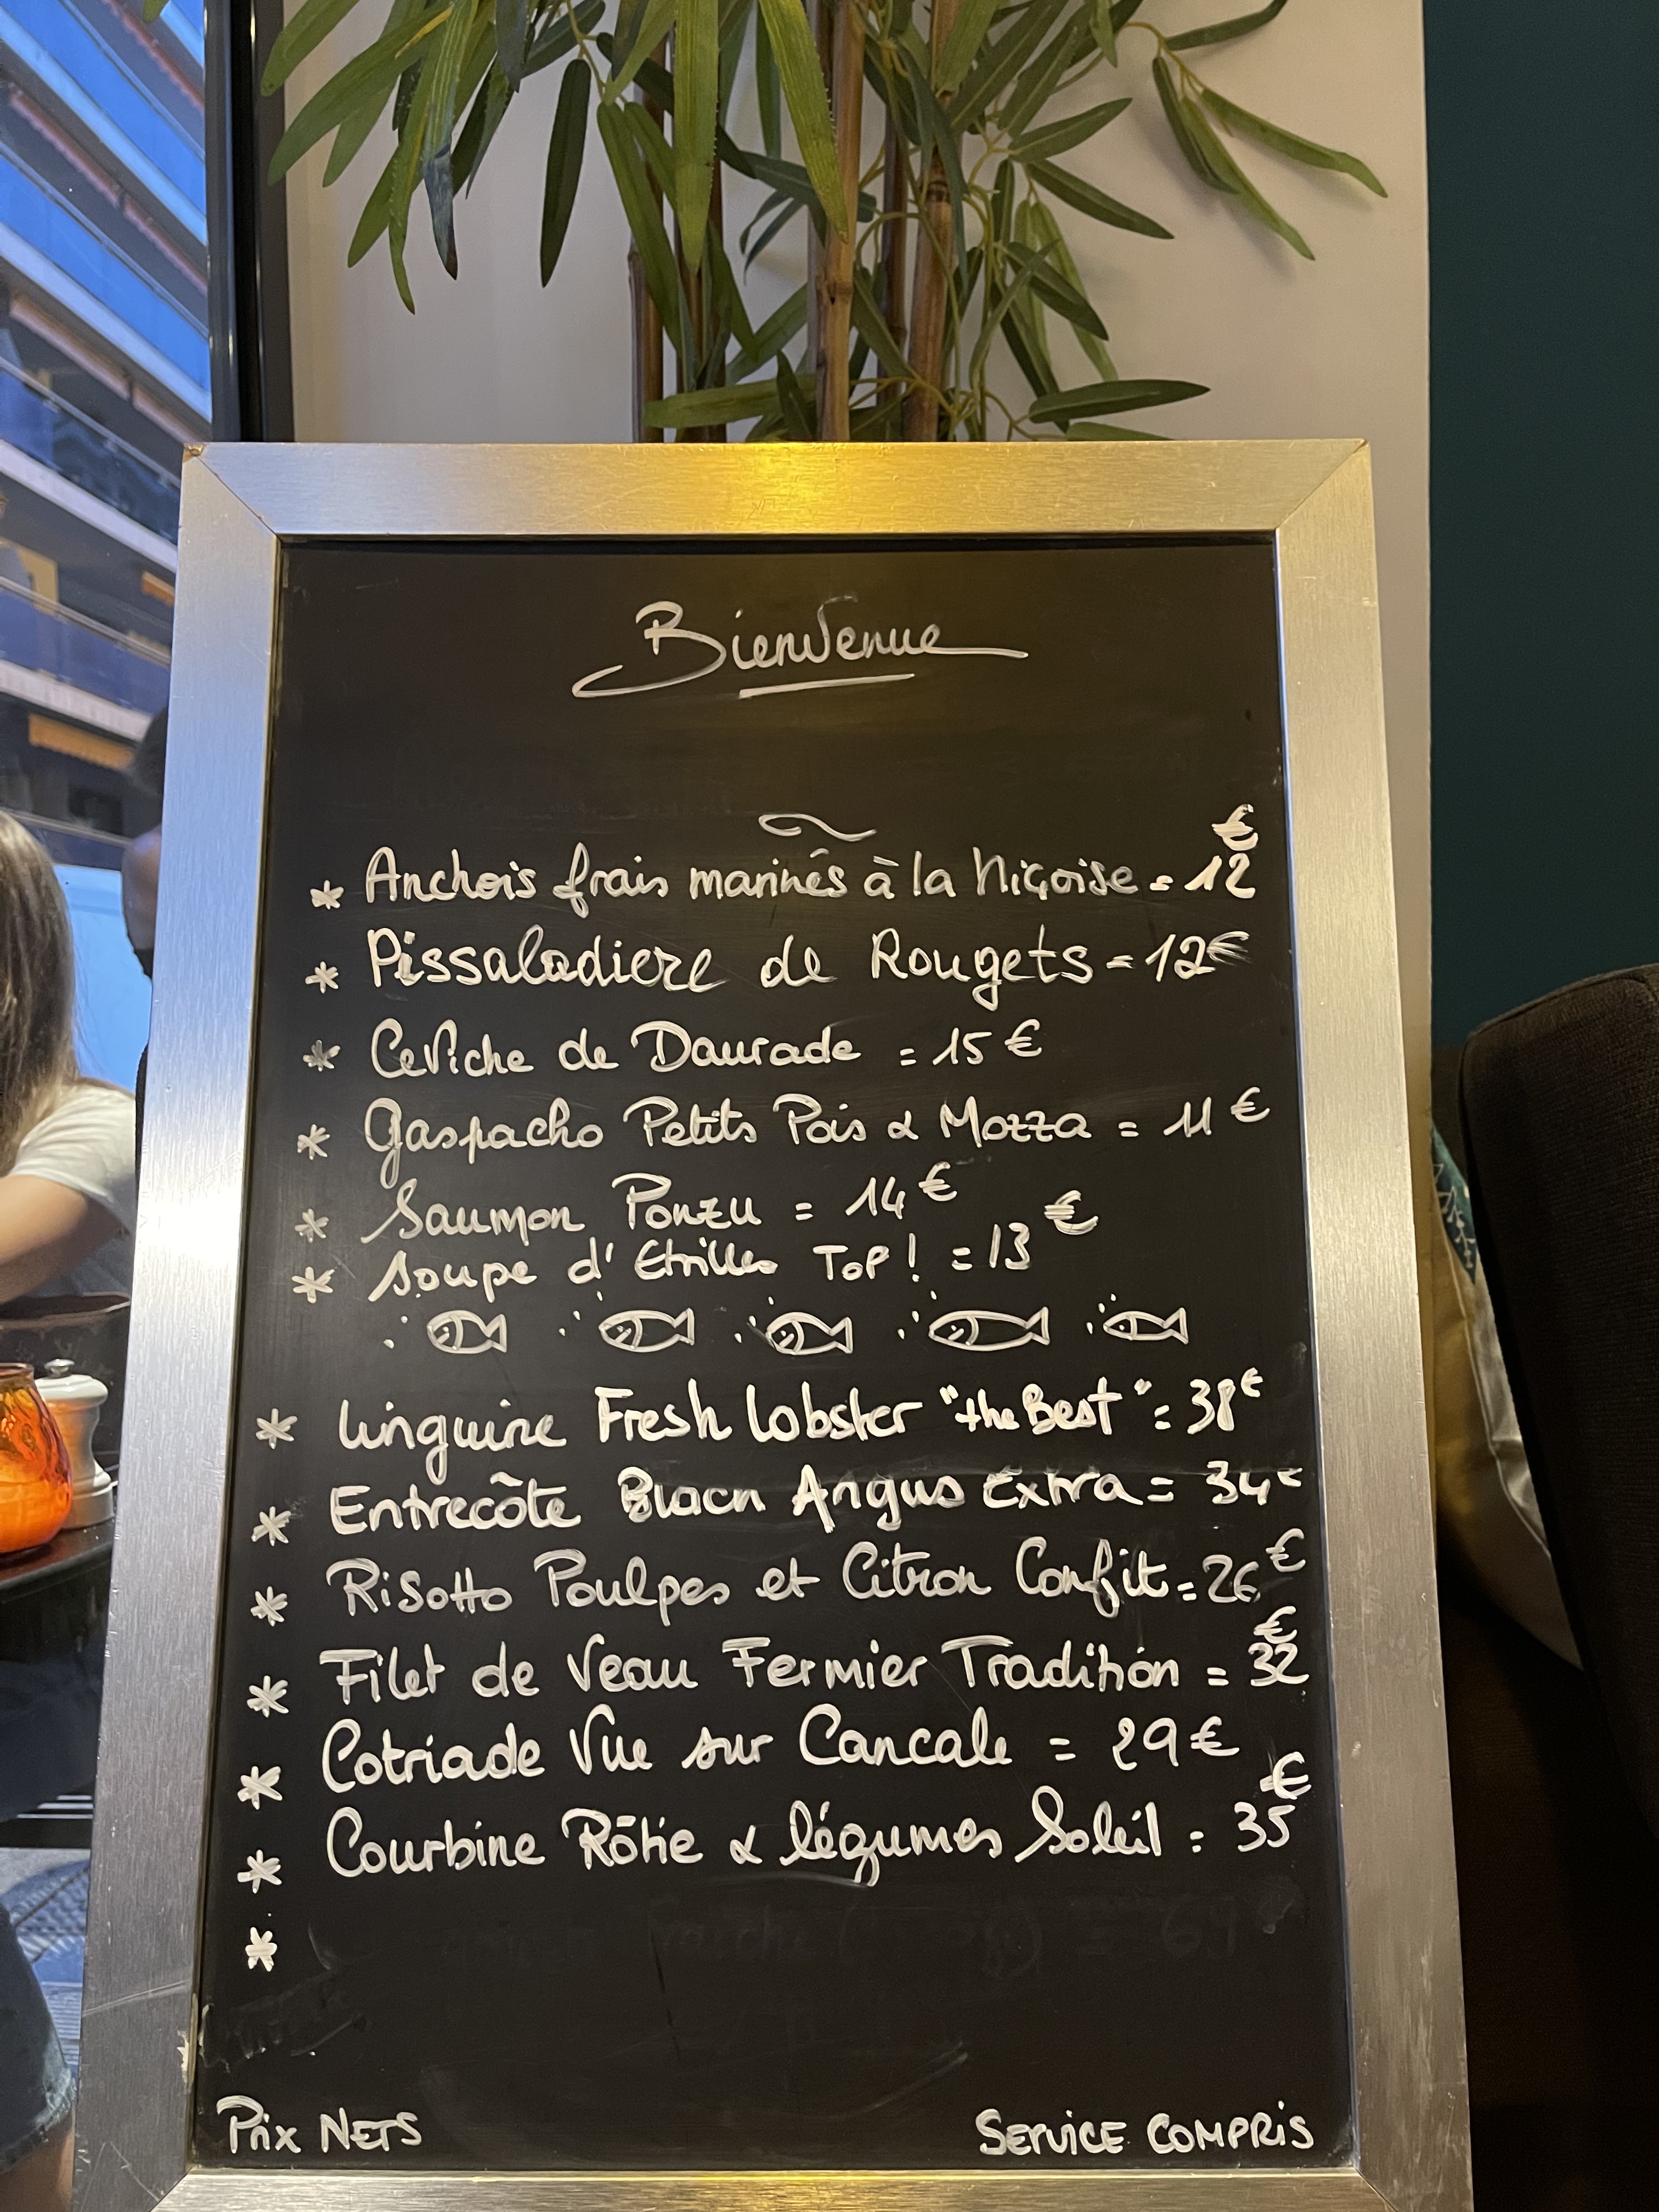 Bienvenue
* Anchois frais marinés à la Niçoise = 12€
* Pissaladiere de Rougets = 12€
* Ceviche de Daurade = 15€
* Gaspacho Petits Pois & Mozza = 11€
* Saumon Ponzu = 14€
* Soupe d'Etrilles Top! = 13€
* Linguine Fresh lobster "the Best" = 38€
* Entrecôte Black Angus Extra = 34€
* Risotto Poulpes et Citron Confit = 26€
* Filet de Veau Fermier Tradition = 32€
* Cotriade Vue sur Cancale = 29€
* Courbine Rôtie & légumes Soleil = 35€
*
Prix NETS
SERVICE COMPRIS